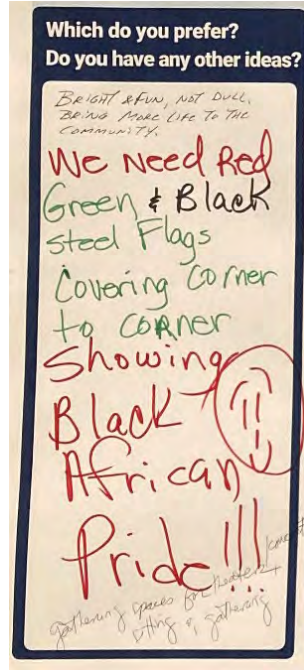 Which do you prefer?
Do you have any other ideas?
BRIGHT & FUN, NOT DULL.
BRING MORE LIFE TO THE
COMMUNITY.
We Need Red
Green & Black
steel Flags
Covering Corner
to CORNER
Showing
Black
African
Pride!!!
gathering spaces for
sitting & gathering